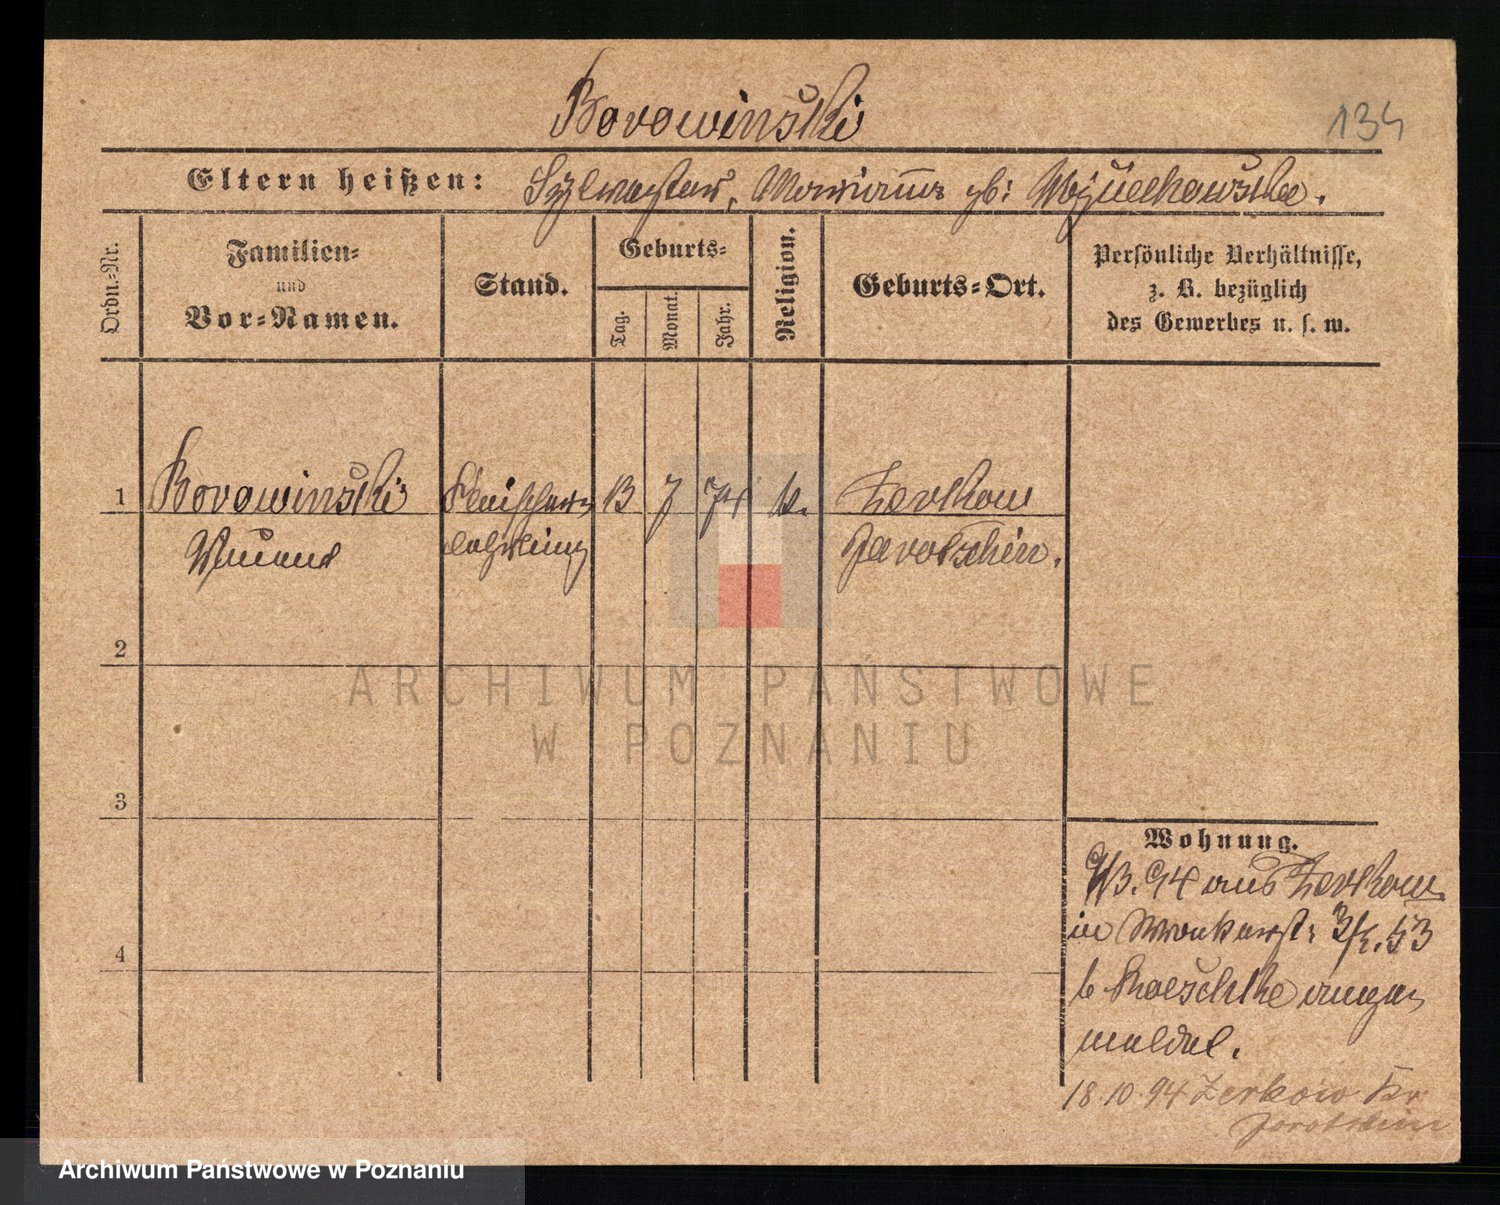 Borowinski
134
Eltern heißen: Sylvester, Marianna gb: Wojciechowska.
Ordn.-Nr.
Familien-
und
Vor-Namen.
Stand.
Geburts-
Tag.
Monat.
Jahr.
Religion.
Geburts-Ort.
Persönliche Verhältnisse,
z. B. bezüglich
des Gewerbes u. s. w.
1 Borowinski 13 7 74 k. Zerkow
Vincent Jarotschin.
2
3
4
Wohnung.
94 aus Zerkow
in Wronkerstr: 53
b ange
meldet.
18.10.94 Zerkow Kr.
Jarotschin
ARCHIWUM PAŃSTWOWE
W POZNANIU
Archiwum Państwowe w Poznaniu